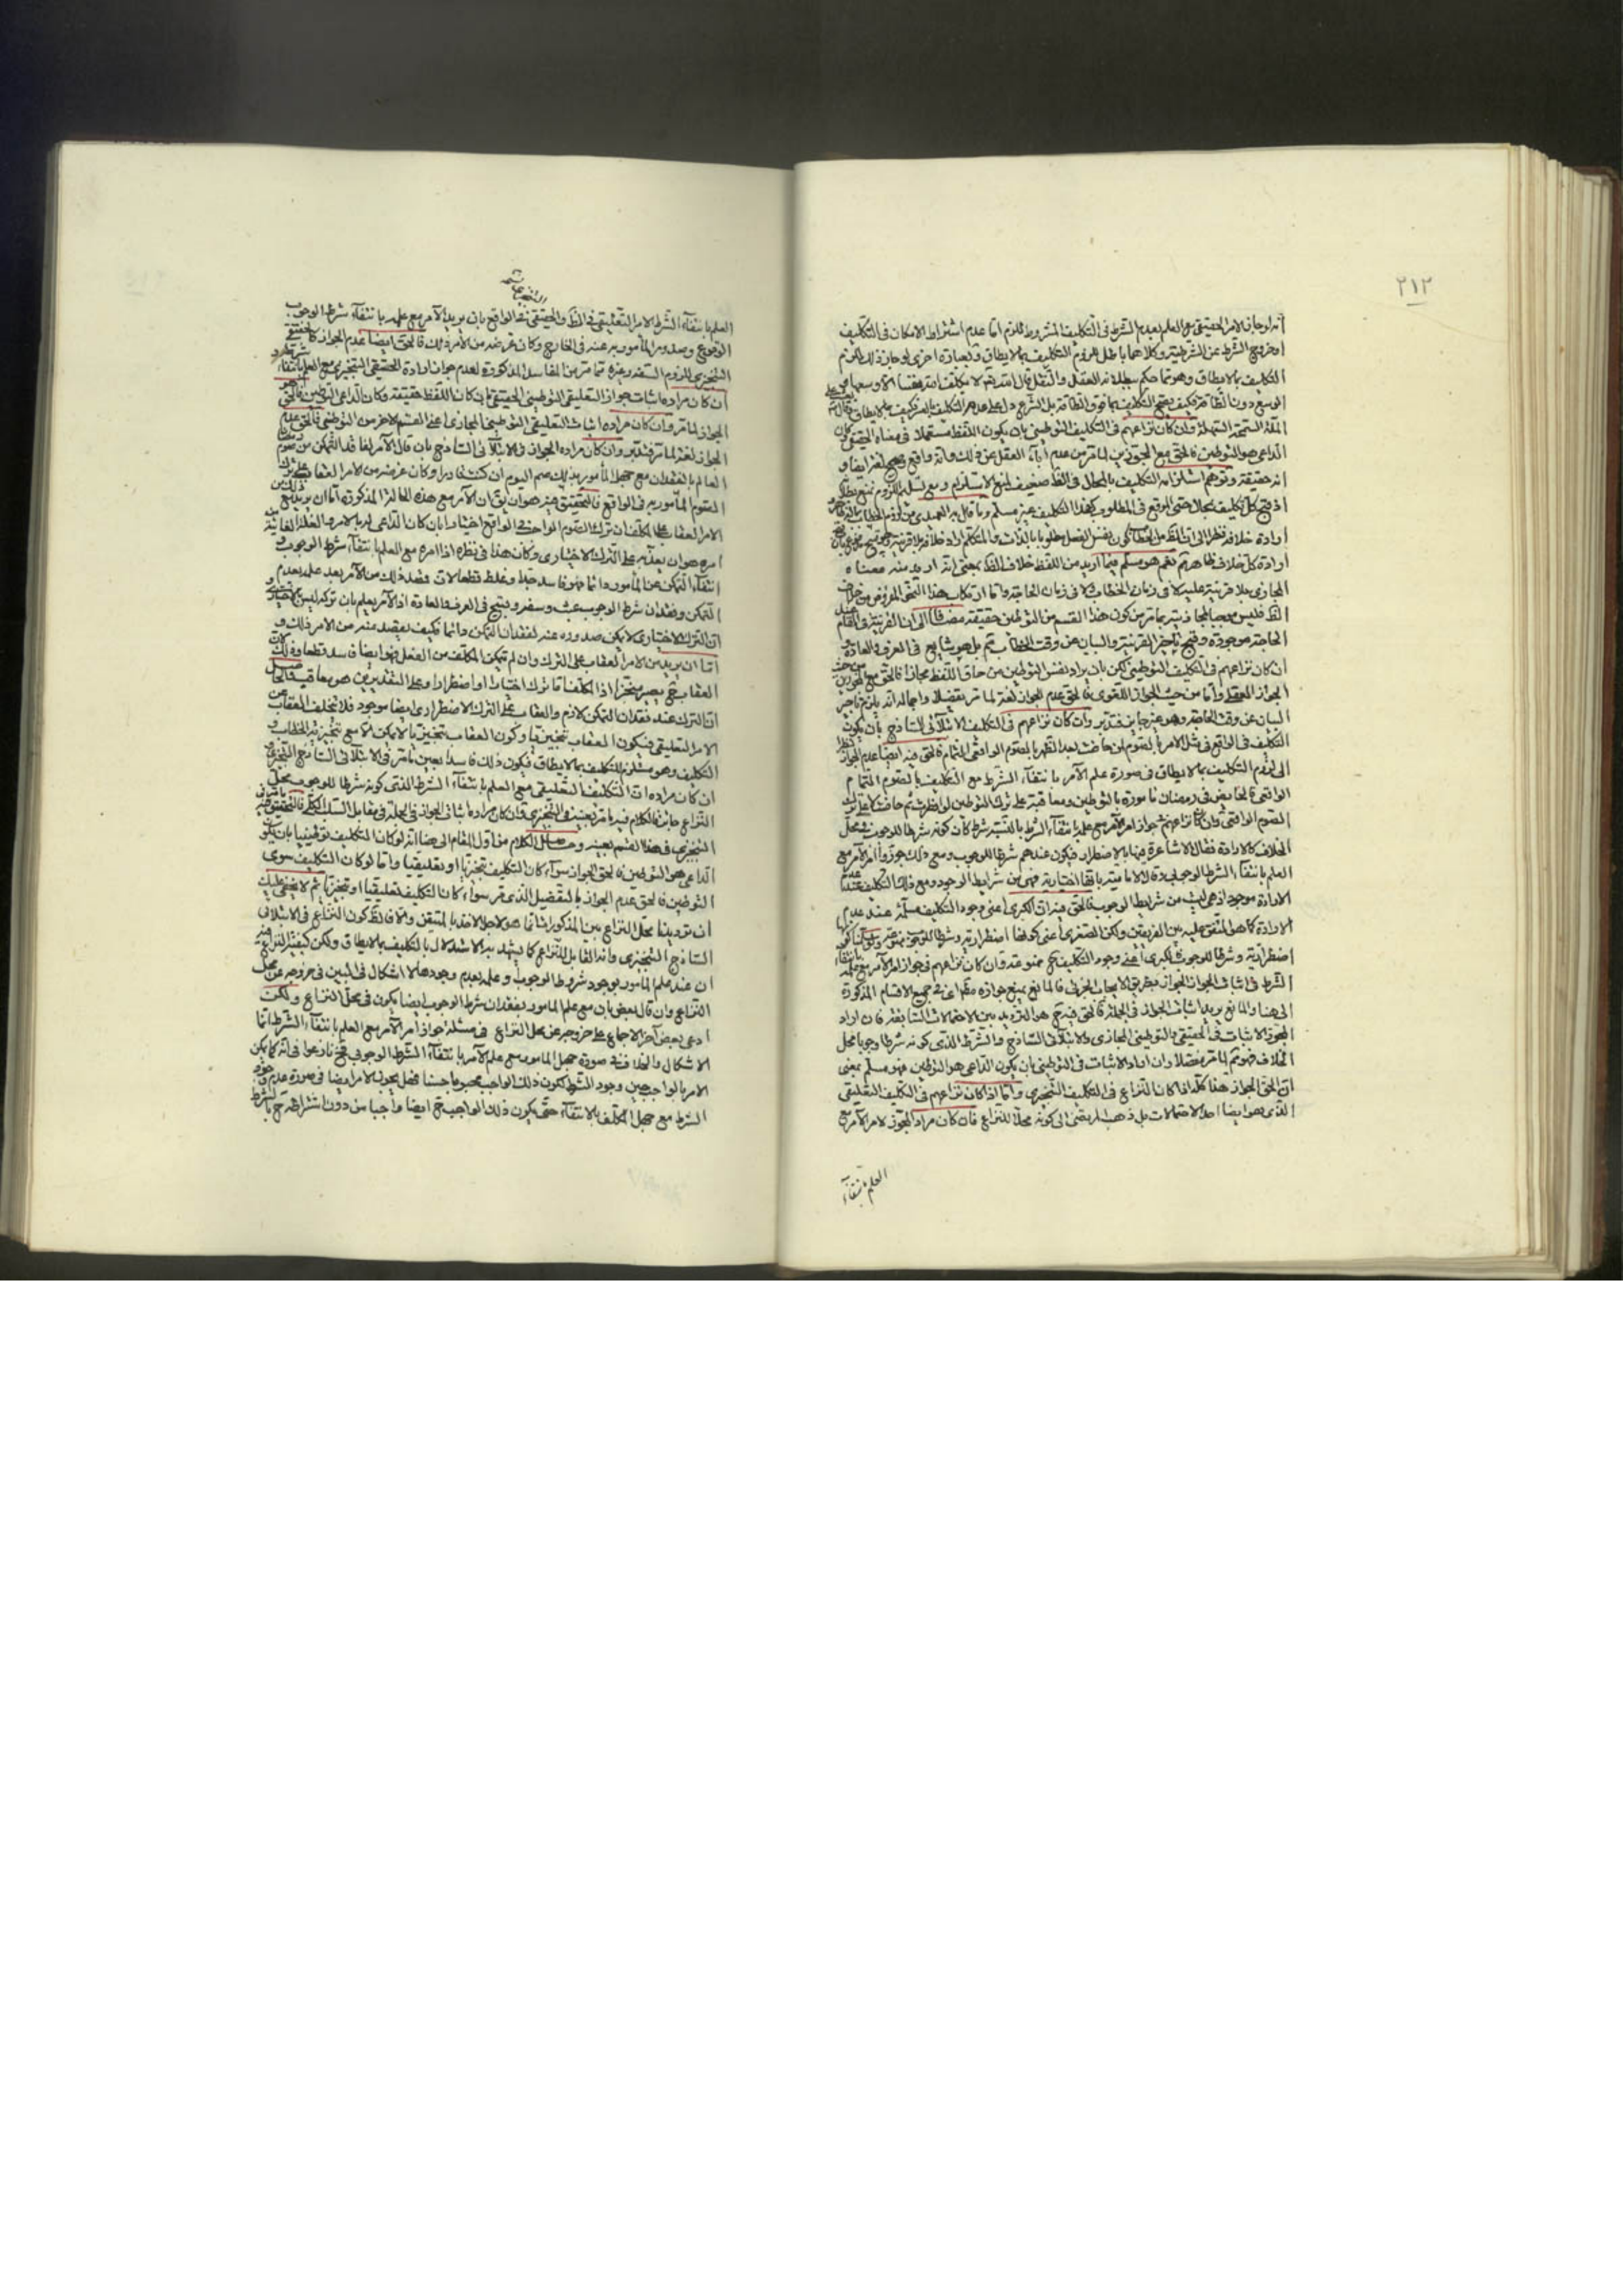 ٢١٣
انه لو جاز الامر الحقيقي مع العلم بعدم الشرط في التكليف المشروط للزم اما عدم اشتراط الامكان في التكليف
او خروج الشرط عن الشرطية وكلاهما باطل فلزم التكليف بما لا يطاق وبعبارة اخرى لو جاز ذلك لزم
التكليف بما لا يطاق وهو مما حكم ببطلانه العقل والنقل قال الله تعالى لا يكلف الله نفسا الا وسعها
الوسع دون الطاقة فكيف يصح التكليف بما فوق الطاقة بل الشرع دل على عدم التكليف
الملة السمحة السهلة وان كان نزاعهم في التكليف التوطيني بان يكون اللفظ مستعملا في معناه الحقيقي
الداعي هو التوطين فالحق مع المجوزين لما مر من عدم اباء العقل عن ذلك وانه واقع وصحيح لغة ايضا و
انه حقيقة وتوهم استلزامه التكليف بالمحال في الظ ضعيف لمنع الاستلزام ومع تسليم اللزوم نمنع بطلان
ارادة كل خلاف ظاهر نعم هو مسلم فيما اريد من اللفظ خلاف الظ بمعنى انه اريد منه معناه
المجازي بلا قرينة عليه لا في زمان الخطاب ولا في زمان الحاجة واما ارتكاب هذا النحو المفروض من خلاف
الظ فليس موجبا لمجازيته بما مر من كون هذا القسم من التوطين حقيقة مضافا الى ان القرينة في المقام
الحاجة موجودة وقبح تاخير القرينة والبيان عن وقت الخطاب ثم بل هو شايع في العرف والعادة و
ان كان نزاعهم في التكليف التوطيني لكن بان يراد نفس التوطين من حاق اللفظ مجازا فالحق مع المجوزين
الجواز العقلي واما من حيث الجواز اللغوي فالحق عدم الجواز لغة لما مر تفصيلا واجماله انه يلزم تاخير
البيان عن وقت الحاجة وهو غير جايز فتدبر وان كان نزاعهم في التكليف الابتلائي الساذج بان يكون
التكليف في الواقع في مثل الامر بالصوم لمن حاضت بعد الظهر بالصوم الواقعي التام فالحق فيه ايضا عدم الجواز
الى لزوم التكليف بما لا يطاق في صورة علم الآمر بانتفاء الشرط مع التكليف بالصوم التام
الواقعي فالحايض في رمضان مامورة بالتوطين ومعاقبة على ترك التوطين لو افطرت ثم حاضت
الصوم الواقعي وان كان نزاعهم في جواز امر الآمر مع علمه بانتفاء الشرط بالنسبة شرط كان كونه شرطا للوجوب في محل
الخلاف كالارادة فقال الاشاعرة فيها بالاضطرار فيكون عندهم شرطا للوجوب ومع ذلك جوزوا امر الآمر مع
العلم بانتفاء الشرط الوجوبي وقال الامامية بانها اختيارية فهي من شرايط الوجود ومع ذلك التكليف عند عدم
الارادة موجود اذ هي ليست من شرايط الوجوب فالحق فيه ان الكبرى اعني وجود التكليف مسلمة عند عدم
الارادة كما هو المتفق عليه بين الفريقين ولكن الصغرى اعني كونها اضطرارية وشرطا للوجوب ممنوعة
اضطرارية وشرطا للوجوب فالكبرى اعني وجود التكليف ح ممنوعة وان كان نزاعهم في جواز امر الآمر مع علمه
الشرط في اثبات الجواز المجوز بطريق الايجاب الجزئي فالمانع يمنع جوازه مطلقا اعني في جميع الاقسام المذكورة
الى هنا والمانع يريد اثبات الجواز في الجملة فالحق فيه ح هو الترديد بين الاحتمالات السابقة فان اراد
المجوز الاثبات في الحقيقي والتوطيني المجازي والابتلائي الساذج والشرط الذي كونه شرطا وجوبا محل
الخلاف فهو ثم لما مر مفصلا وان اراد الاثبات في التوطيني بان يكون الداعي هو التوطين فهو مسلم بمعنى
ان الحق الجواز هذا كله اذا كان النزاع في التكليف التنجيزي واما اذا كان نزاعهم في التكليف التعليقي
الذي هو ايضا احد الاحتمالات بل ذهب المرتضى الى كونه محلا للنزاع فان كان مراد المجوز لامر الآمر مع
العلم بانتفاء
العلم بانتفاء الشرط الامر التعليقي في الظ والحقيقي في الواقع بان يريد الآمر مع علمه بانتفاء شرط الوجوب
الوقوع وصدور المأمور به عنه في الخارج وكان غرضه من الامر ذلك فالحق ايضا عدم الجواز كالحقيقي
التنجيزي للزوم السفه وغيره مما مر من المفاسد المذكورة لعدم جواز ارادة الحقيقي التنجيزي مع العلم بانتفاء
ان كان مراده اثبات جواز التعليقي التوطيني الحقيقي بان كان اللفظ حقيقة وكان الداعي التوطين فالحق
الجواز لما مر وان كان مراده اثبات التعليقي التوطيني المجازي اعني القسم الاخر من التوطيني فالحق عدم
الجواز لغة لما مر فتدبر وان كان مراده الجواز في الابتلائي الساذج بان قال الآمر لفاقد التمكن من صوم
العالم بالفقدان مع جهل المأمور بذلك صم اليوم ان كنت قادرا وكان غرضه من الامر العقاب على ترك
الصوم المأمور به في الواقع فالتحقيق فيه هو ان يق ان الآمر مع هذه الحالة المذكورة اما ان يريد
الامر العقاب على المكلف ان ترك الصوم الواحد في الواقع اختيارا بان كان الداعي له بالامر والعلة الغائية
امره هو ان يعذبه على الترك الاختياري وكان هذا في نظره اذا امره مع العلم بانتفاء شرط الوجوب و
انتفاء التمكن عن المأمور دائما فهو فاسد جدا وغلط قطعا لان قصد ذلك من الآمر بعد علمه بعدم
التمكن وفقدان شرط الوجوب عبث وسفه وقبيح في العرف والعادة اذ الآمر يعلم بان تركه ليس بالاختيار و
ان الترك الاختياري لا يمكن صدوره عنه لفقدان التمكن دائما فكيف يقصد منه من الامر ذلك و
اما ان يريد من الامر العقاب على الترك وان لم يتمكن المكلف من الفعل فهو ايضا فاسد قطعا وذلك
العقاب ح يصير منجزا اذ المكلف تارك اختيارا او اضطرارا وعلى التقديرين هو معاقب
ان الترك عند فقدان التمكن لازم والعقاب على الترك الاضطراري ايضا موجود فلا يتخلف العقاب عن
الامر التعليقي فيكون العقاب تنجيزيا وكون العقاب تنجيزيا لا يمكن الا مع تنجيزية الخطاب و
التكليف وهو مستلزم للتكليف بما لا يطاق فيكون ذلك فاسدا بعين ما مر في الابتلائي الساذج التنجيزي
ان كان مراده ان التكليف التعليقي مع العلم بانتفاء الشرط الذي كونه شرطا للوجوب محل
النزاع جايز فالكلام فيه ما مر بعينه في التنجيزي وان كان مراده اثبات الجواز في الجملة في مقابل السلب الكلي فالتحقيق
التنجيزي في هذا القسم بعينه وحاصل الكلام من اول المقام الى هنا انه لو كان التكليف توطينيا بان يكون
الداعي هو التوطين فالحق الجواز سواء كان التكليف تنجيزيا او تعليقيا واما لو كان التكليف سوى
التوطين فالحق عدم الجواز بالتفصيل الذي مر سواء كان التكليف تعليقيا او تنجيزيا ثم لا يخفى عليك
ان ترديدنا محل النزاع بين المذكورات انما هو لاجل الاخذ بالمتيقن والا فالظ كون النزاع في الابتلائي
الساذج التنجيزي وانه القابل للنزاع كما يشهد به الاستدلال بالتكليف بما لا يطاق ولكن
ان عند علم المأمور بوجود شروط الوجوب وعلمه بعدم وجودها لا اشكال في البين في خروجه عن محل
النزاع وان قال بعض بان مع علم المأمور بفقدان شرط الوجوب ايضا يكون في محل النزاع ولكن
ادعى بعض آخر الاجماع على خروجه عن محل النزاع في مسئلة جواز امر الآمر مع العلم بانتفاء الشرط انما
الاشكال والخلاف في صورة جهل المأمور مع علم الآمر بانتفاء الشرط الوجوبي فح نازعوا في انه كما يمكن
الامر بالواجب حين وجود الشرط لكون ذلك الواجب محبوبا حسنا فهل يجوز الامر ايضا في صورة عدم وجود
الشرط مع جهل المكلف بالانتفاء حتى يكون ذلك الواجب ح ايضا واجبا من دون اشتراطه ح بالشرط